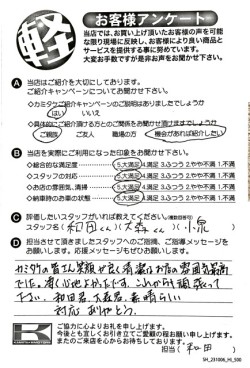 軽
お客様アンケート
当店では、お買い上げ頂いたお客様の声を可能
な限り現場に反映し、お客様により良い商品と
サービスを提供する事に努めています。
大変お手数ですが是非お声をお聞かせ下さい。
A 当店はご紹介を大切にしております。
ご紹介キャンペーンについてお聞かせ下さい。
◇カミタケご紹介キャンペーンのご説明はありましたでしょうか
はい いいえ
◇具体的にご紹介頂ける方とのご関係をお聞かせ頂けますでしょうか
ご親戚 ご友人 職場の方 機会があれば紹介したい
B 当店を実際にご利用になった印象をお聞かせ下さい。
◇総合的な満足度 5.大満足 4.満足 3.ふつう 2.やや不満 1.不満
◇スタッフの対応 5.大満足 4.満足 3.ふつう 2.やや不満 1.不満
◇お店の雰囲気、清掃 5.大満足 4.満足 3.ふつう 2.やや不満 1.不満
◇納車時のお車の状態 5.大満足 4.満足 3.ふつう 2.やや不満 1.不満
C 評価したいスタッフがいれば教えてください。(複数回答可)
スタッフ名 (和田くん)(大森くん)(小泉)
D 担当させて頂きましたスタッフへのご指摘、ご指導メッセージを
お願いします。応援メッセージもぜひお願いします。
カミタケの皆さん笑顔が良く清潔でお店の雰囲気最高
でした。
これからも頑張って
下さい。和田君、大森君、素晴らしい
対応ありがとう。
K
ご協力に心よりお礼を申し上げます。
今後とも宜しくお引き立てご愛顧の程お願い申し上げます。
またのご来店を心からお待ちしております。
担当(和田)
SH_231006_HI_500